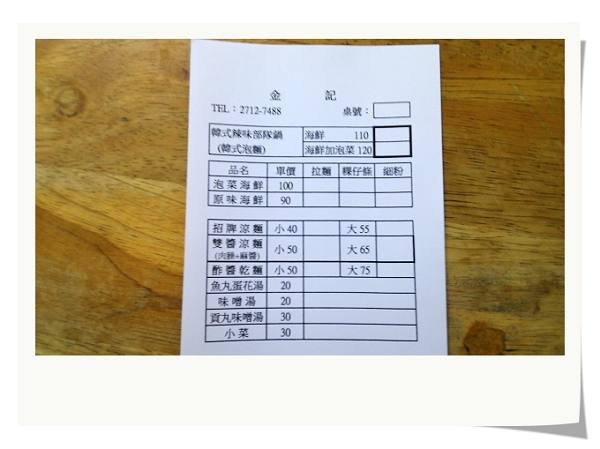 金 記
TEL：2712-7488 桌號：
韓式辣味部隊鍋 海鮮 110
(韓式泡麵) 海鮮加泡菜 120
品名 單價 拉麵 粿仔條 細粉
泡菜海鮮 100
原味海鮮 90
招牌涼麵 小 40 大 55
雙醬涼麵 小 50 大 65
(肉臊+麻醬)
酢醬乾麵 小 50 大 75
魚丸蛋花湯 20
味噌湯 20
貢丸味噌湯 30
小菜 30